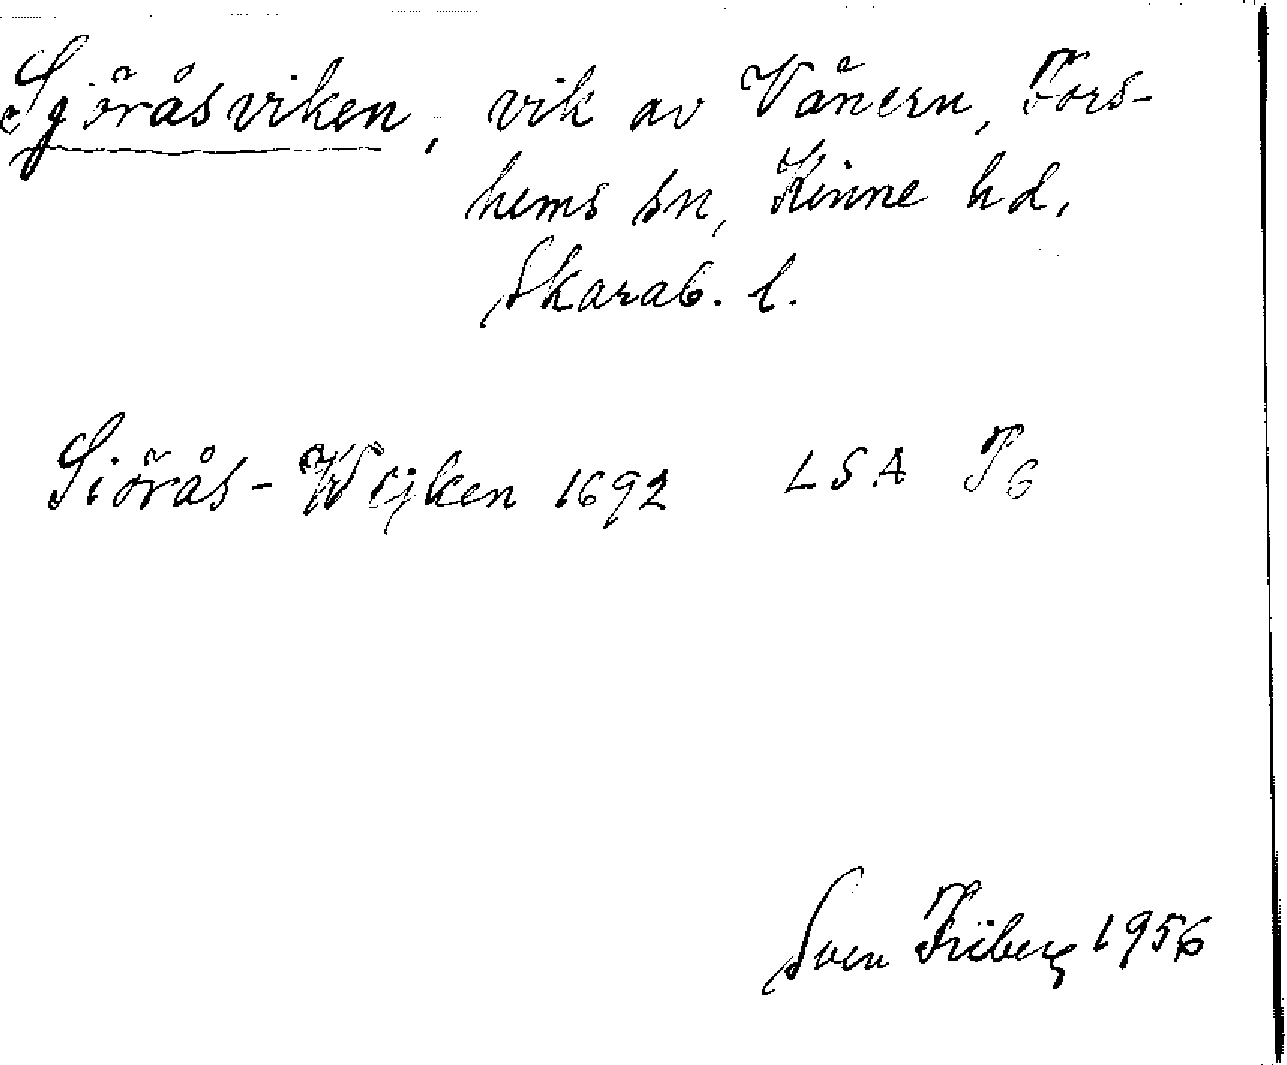 Sjöråsviken, vik av Vänern, Fors-
hems sn, Kinne hd,
Skarab. l.
Siörås-Wijken 1692 LSA P6
Sven Friberg 1956